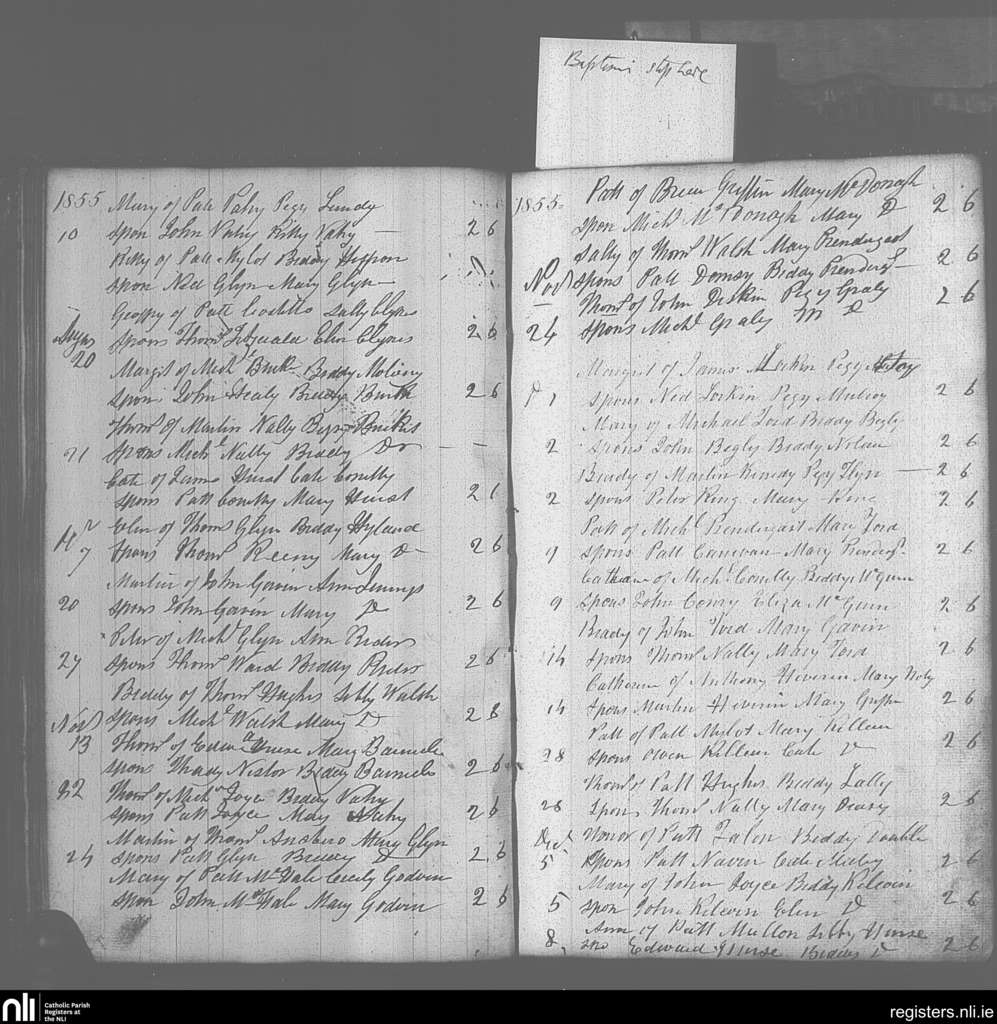 Baptisms stop here
1855 Mary of Patt Vahy Pegy Lundy
10 spon John Vahy Kitty Vahy — 2 6
Kitty of Patt Mylot Biddy Heffron
spon Ned Glyn Mary Glyn —
Geoffry of Patt Costello Sally Glyn
spons Thoms Elen Glynes 2 6
20
Margit of Mich Burk Biddy
spon John Healy Bready Burk 2 6
Thoms of Martin Nally
21 spons Michl Nally Bready Do — —
Cate of James Hurst Cate Comthy
spons Patt Mary Hurst 2 6
Elen of Thoms Glyn Biddy Hyland
7 spons Thoms Keeny Mary Do 2 6
Martin of John Gavin Ann Jenings
20 spons John Gavin Mary Do 2 6
Peter of Michl Glyn Ann Rider
27 spons Thoms Ward Biddy Rider 2 6
Biddy of Thoms Hughes Sibby Walsh
Nov spons Michl Walsh Mary Do 2 6
13 Thoms of Edwd Nurse Mary Barmele
spon Thady Nestor Biddy Barmele 2 6
22 Thoms of Michl Joyce Biddy Vahy
spons Patt Joyce Mary Vahy 2 6
Martin of Thoms Ansboro Mary Glyn
24 spons Patt Glyn Bready Do 2 6
Mary of Patt McHale Cecily Godwin
spon John McHale Mary Godwin 2 6
1855 Patt of Brien Griffin Mary McDonagh
spon Michl McDonagh Mary Do 2 6
Sally of Thoms Walsh Mary Prendergast
Nov spons Patt Biddy Prenderg— 2 6
— Thoms of John Diskin Pegy Graly 2 6
24 spons Michl Graly M Do
Margret of James Lorkin Pegy
1 spons Ned Lorkin Pegy Mulroy 2 6
Mary of Michael Ford Biddy Begly
2 spons John Begly Biddy Nolan 2 6
Bready of Martin Pegy Flyn — 2 6
2 spons Peter King Mary King 2 6
Patt of Michl Prendergast Mary Ford
9 spons Patt Canavan Mary Prenderg. 2 6
Catharin of Michl Comthy Biddy McGuin
9 spons John Conry Eliza McGuin 2 6
Bready of John Ford Mary Gavin
14 spons Thoms Nally Mary Ford 2 6
Catherine of Anthony Heverin Mary
14 spons Martin Heverin Mary Griffin 2 6
Patt of Patt Mylot Mary Killeen
28 spons Owen Killeen Cate Do 2 6
Thoms of Patt Hughes Biddy Lally
28 spons Thoms Nally Mary 2 6
Decr Honor of Patt Biddy
5 spons Patt Naven Cate 2 6
Mary of John Joyce Biddy Kilcoin
5 spon John Kilcoin Elen Do 2 6
Ann of Patt Mullon Sibby Nurse
8 spo Edward Nurse Do 2 6
nli Catholic Parish Registers at the NLI
registers.nli.ie